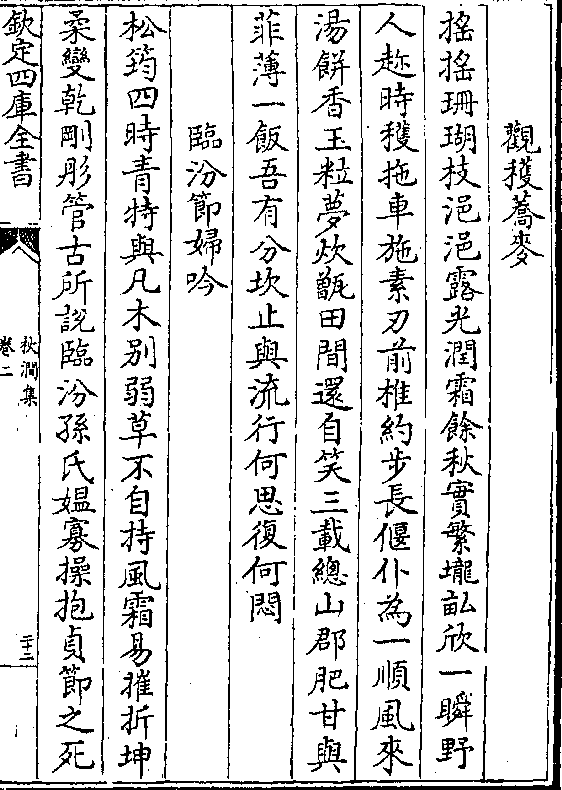 觀穫蕎麥
搖搖珊瑚枝浥浥露光潤霜餘秋實繁壠畝欣一瞬野
人趂時穫拖車施素刃前椎約步長偃仆為一順風來
湯餅香玉粒夢炊甑田間還自笑三載總山郡肥甘與
菲薄一飯吾有分坎止與流行何思復何悶
臨汾節婦吟
松筠四時青特與凡木别弱草不自持風霜易摧折坤
柔變乾剛彤管古所說臨汾孫氏媼寡操抱貞節之死
欽定四庫全書
秋澗集
卷二
二十二